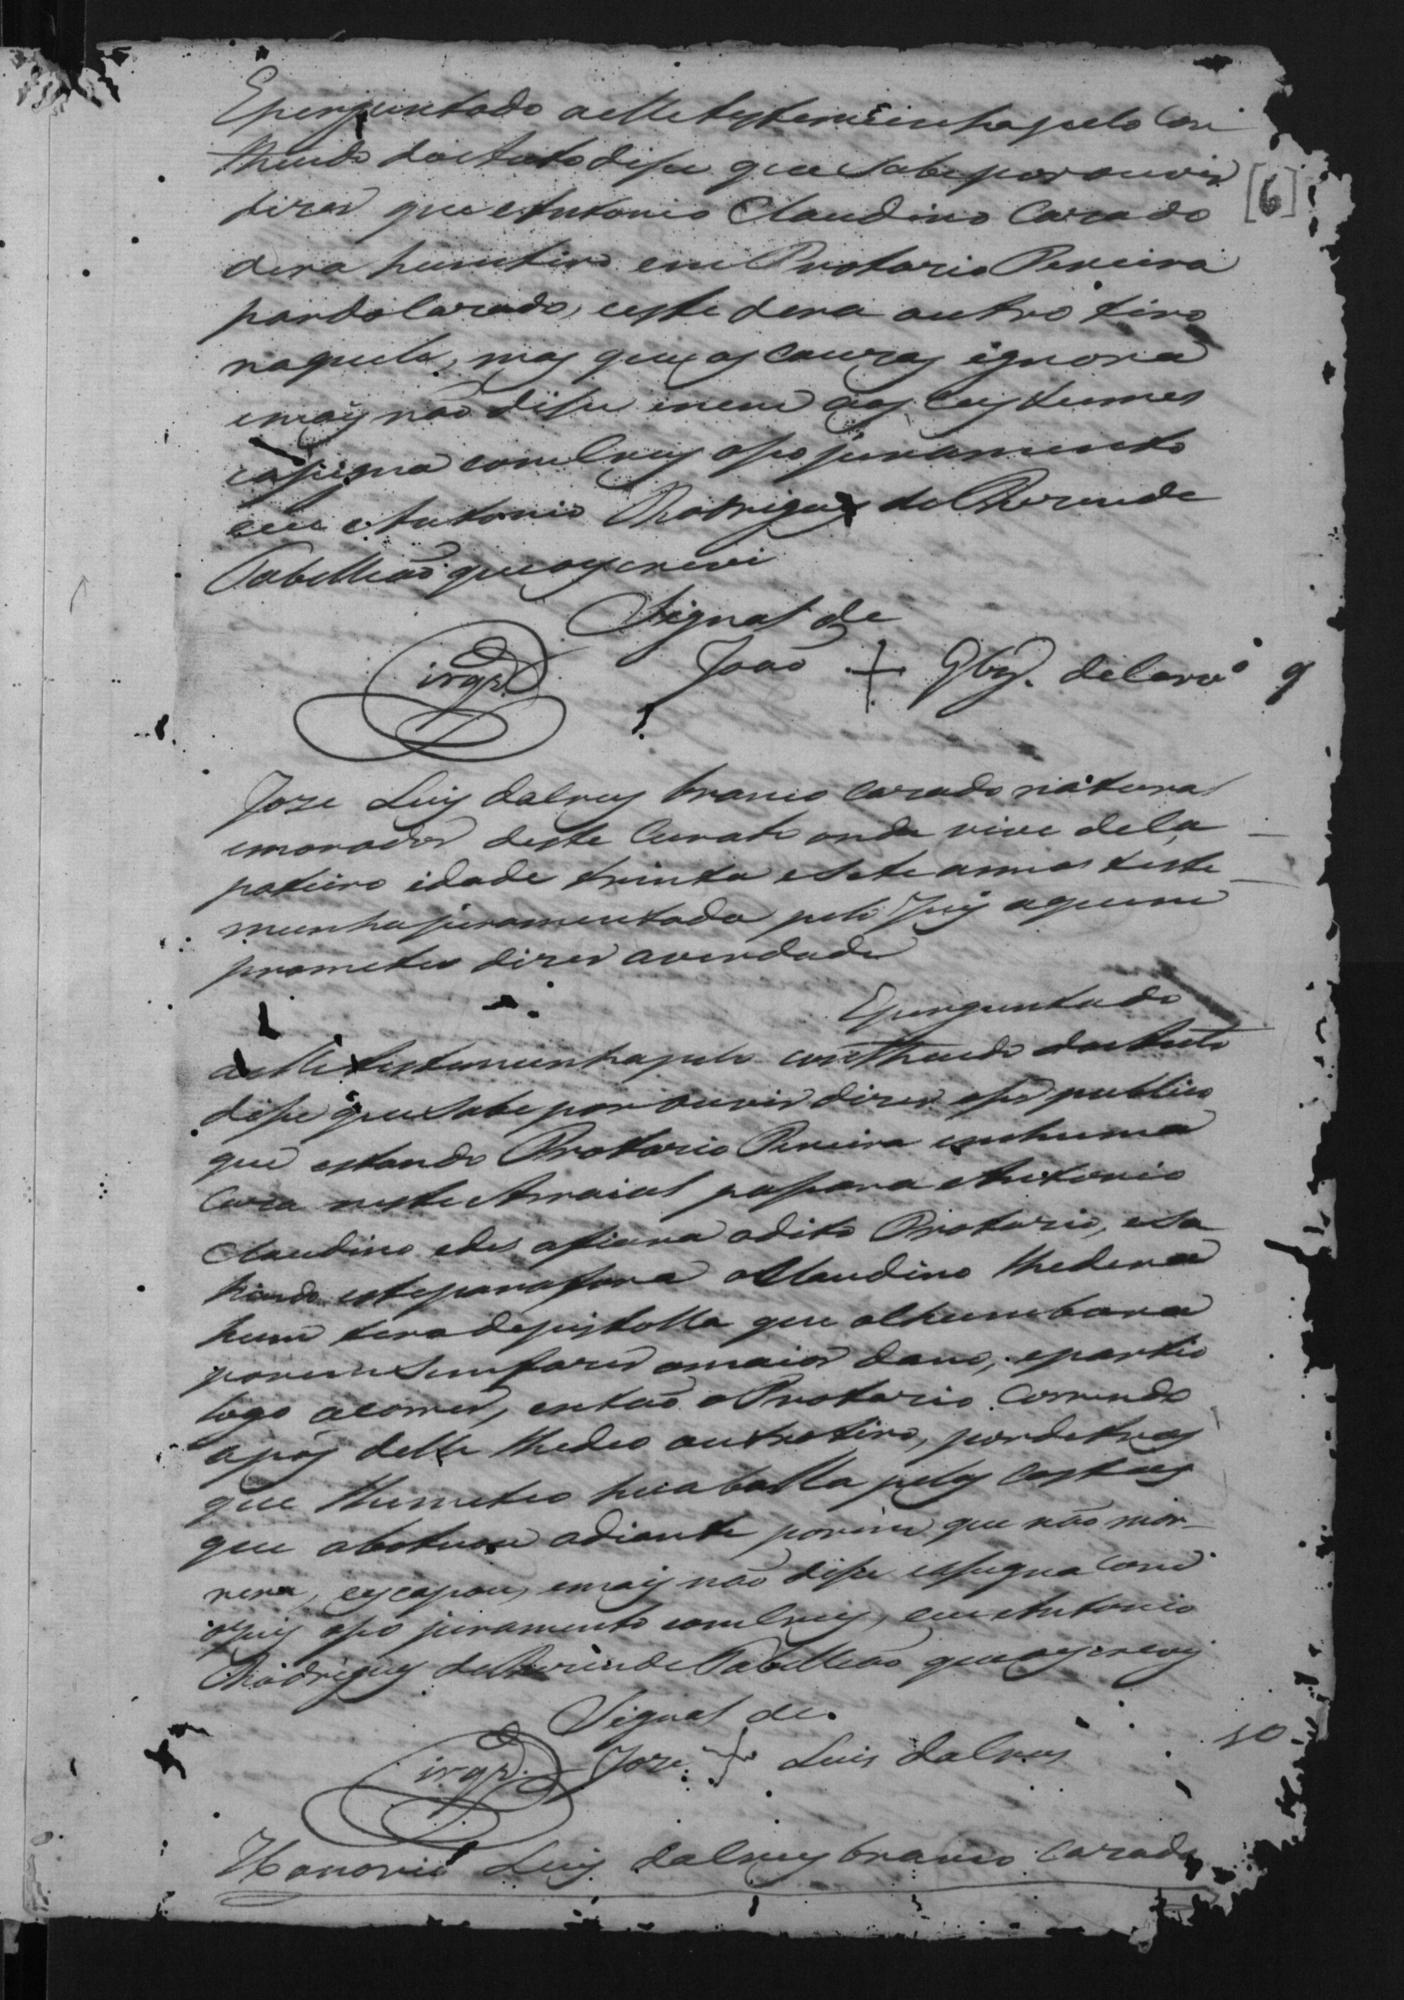 E perguntado a elle testemunha pelo Con
theudo do Auto disse que sabe por ouvir
dizer que Antonio Claudino Cazado
dera hum tiro em Protazio Pereira
pardo Cazado, e este dera outro tiro
naquele, mas que as cauzas ignora
e mais não disse e nem aos custumes
e assigna com Cruz apos juramento
eu Antonio Rodrigues de Rezende
Tabelliaõ que a escrevi
[6]
Signal de
João + Glz. de
9
Joze Luis dalruz branco cazado natural
e morador deste Curato onde vive de Ca
pateiro idade trinta e sete annos teste
munha juramentada pelo Juiz a quem
prometeu dizer a verdade
E perguntado
a elle testemunha pelo contheudo do Auto
disse que sabe por ouvir dizer e ser publico
que estando Protazio Pereira em huma
Caza neste Arraial passara Antonio
Claudino e des afiara o dito Protazio, e sa
hindo este para fora o Claudino lhe dera
hum tiro de pistolla que o
porem sem fazer o maior dano, e partio
logo a correr, então o Protazio correndo
apos delle lhe deo outro tiro, por detras
que lhe meteo hua balla pelas Costas
que abotuou adiante porem que não mor-
rera, escapou, e mais não disse e assigna Com
o Juis apos juramento com Cruz, eu Antonio
Rodrigues de Rezende Tabelliaõ que a escrevy
Signal de
Joze + Luis dalruz
10
Honorio Luis dalruz branco Cazado